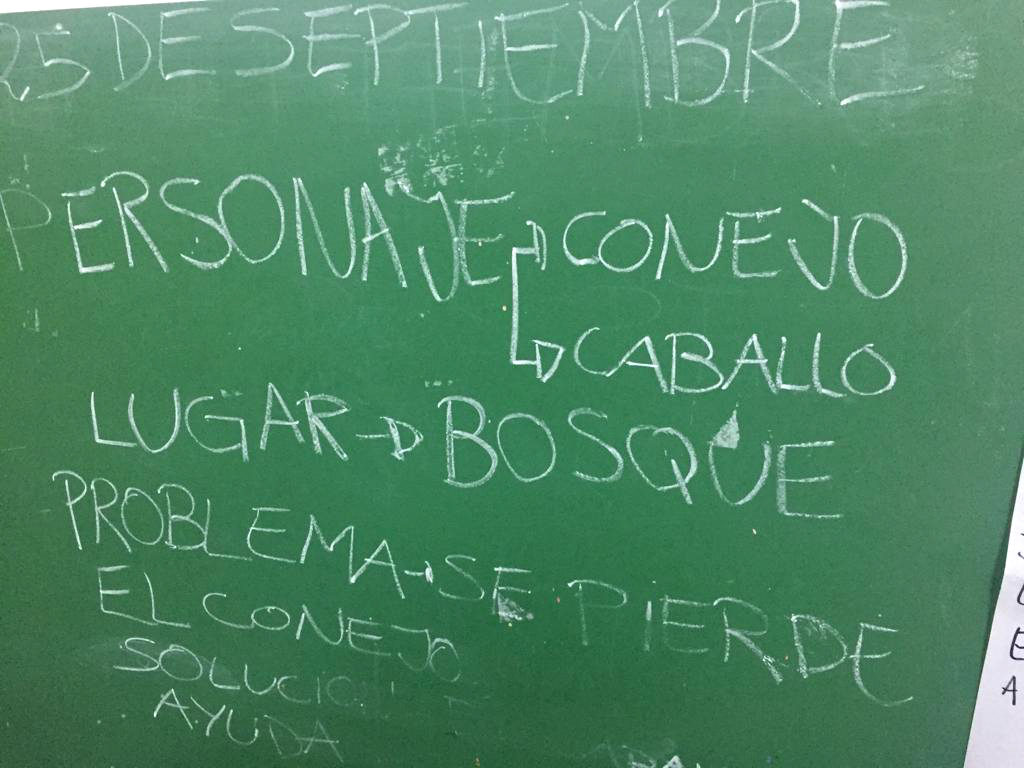 25 DE SEPTIEMBRE
PERSONAJE → CONEJO
→ CABALLO
LUGAR → BOSQUE
PROBLEMA → SE PIERDE
EL CONEJO
SOLUCIO
AYUDA
E
A